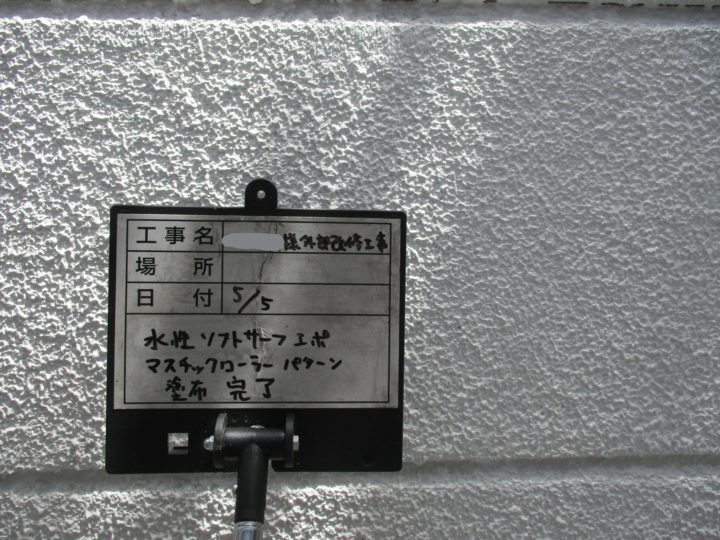 工事名 様外部改修工事
場所
日付 5/5
水性ソフトサーフエポ
マスチックローラーパターン
塗布 完了